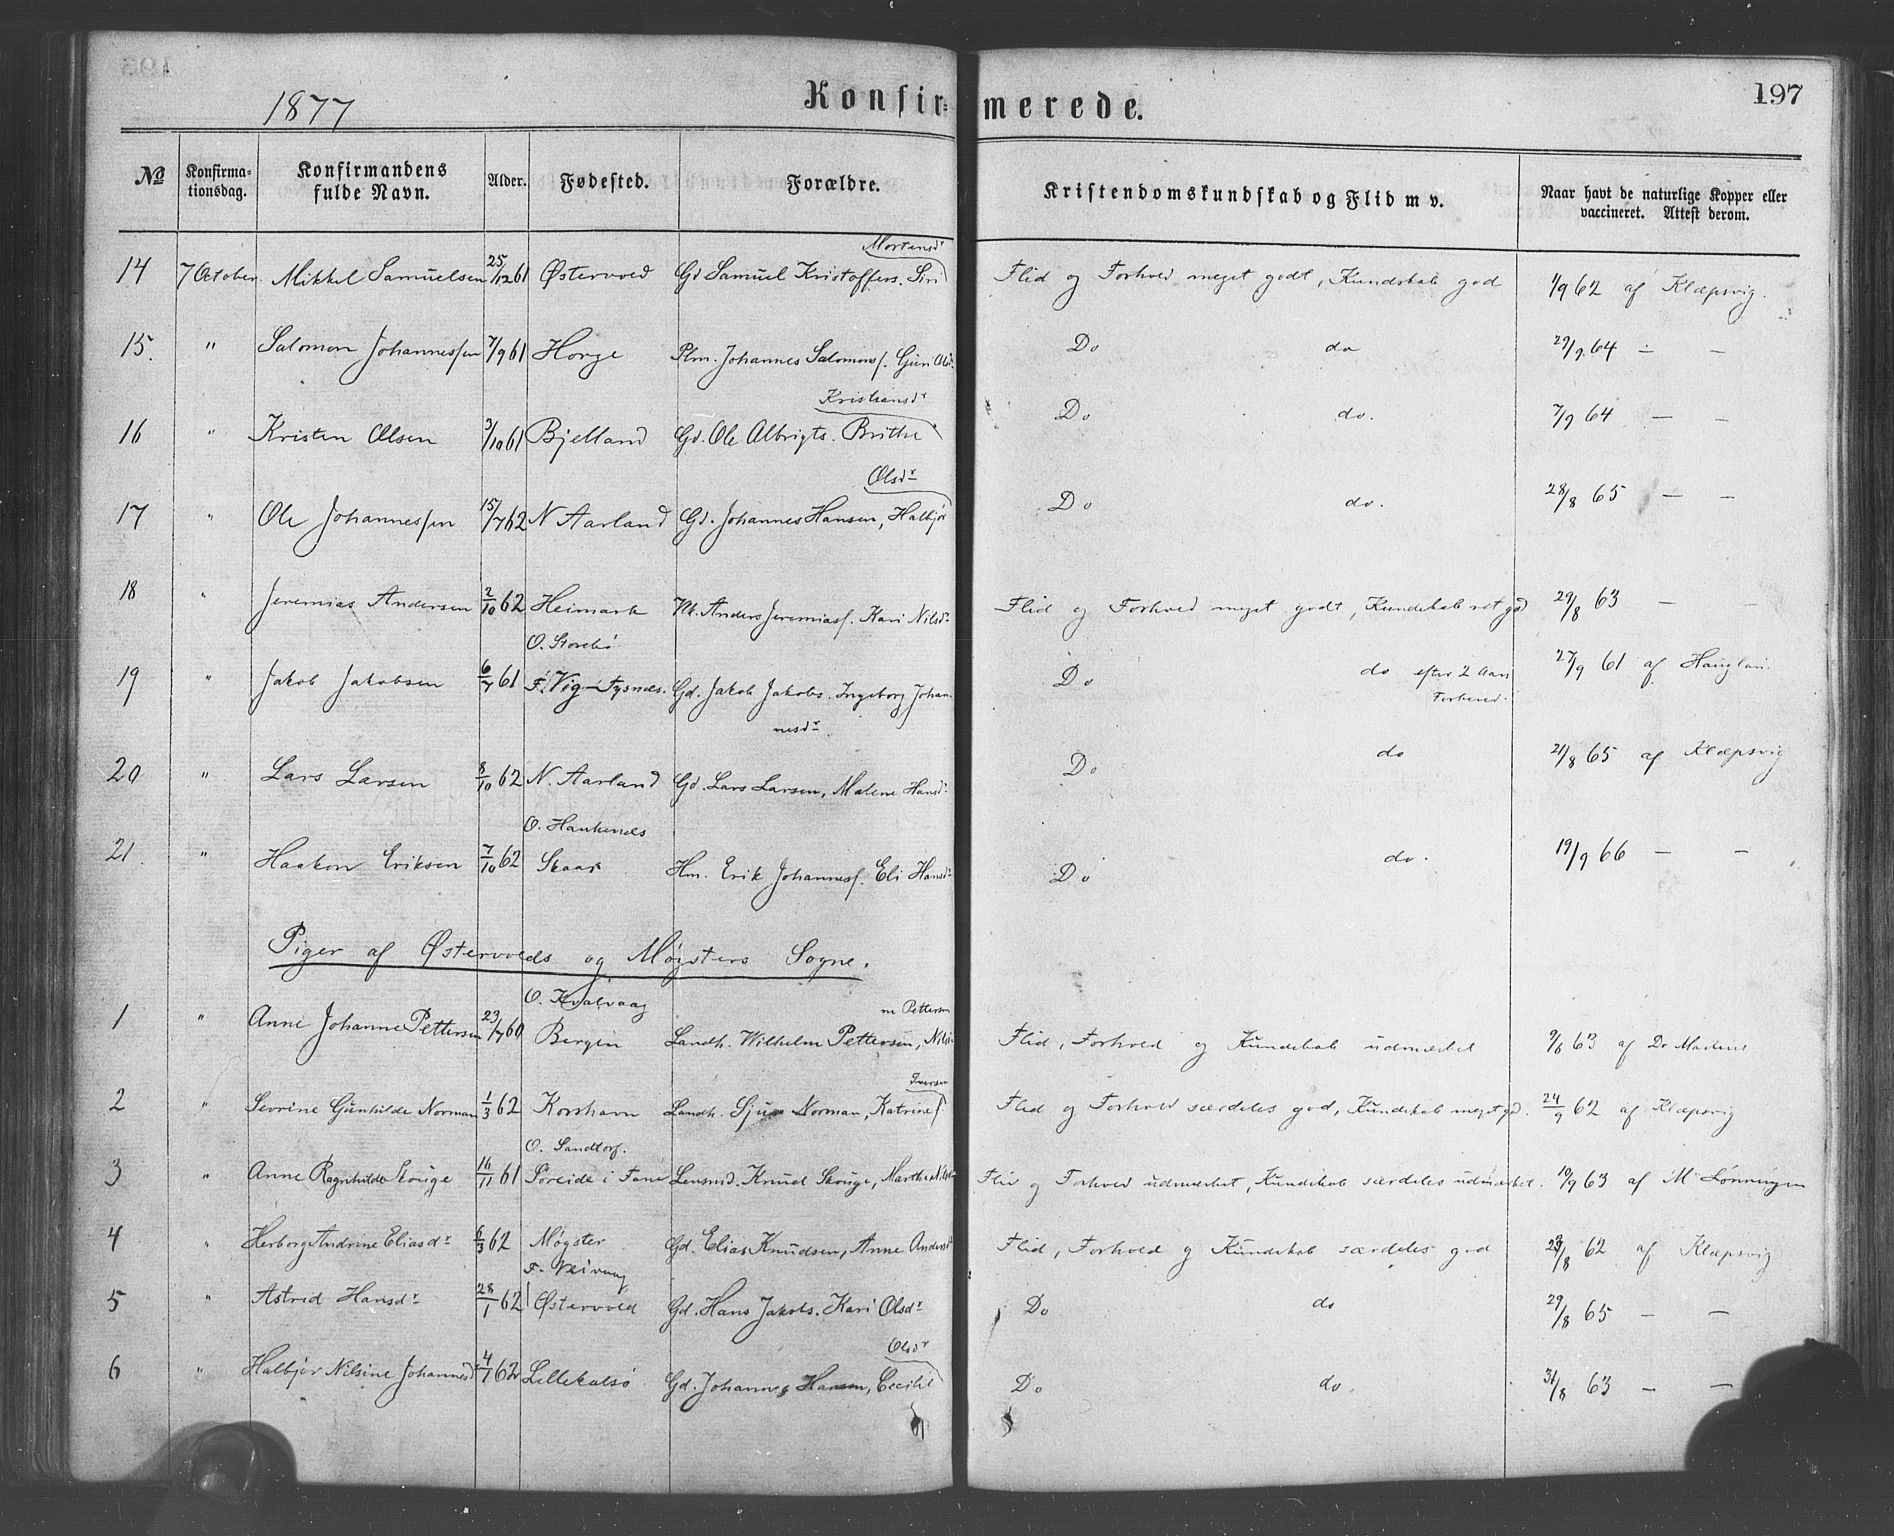 1877 Konfirmerede. 197
№ Konfirmationsdag. Konfirmandens fulde Navn. Alder. Fødested. Forældre. Kristendomskundskab og Flid m v. Naar havt de naturlige Kopper eller vaccineret. Attest derom.
Mortensdr
14 7 October Mikkel Samuelsen 25/12 61 Østervold Gd Samuel Kristoffers. Siri Flid og Forhold meget godt, Kundskab god 1/9 62 af Klæpsvig.
15. " Salomon Johannessen 7/9 61 Horge Plm. Johannes Salomons. Guri Olsdr. Do do 29/9 64 — —
Kristiansdr
16 " Kristen Olsen 3/10 61 Bjelland Gd. Ole Albrigts. Brithe Do do. 7/9 64 — —
Olsdr
17 " Ole Johannessen 15/7 62 N Aarland Gd. Johannes Hansen, Halbjør Do do. 28/8 65 — —
18 " Jeremias Andersen 2/10 62 Heimark M. Anders Jeremiass. Kari Nilsdr Flid og Forhold meget godt, Kundskab ret god 29/8 63 — —
O. Storebø
19 " Jakob Jakobsen 6/7 61 F. Vig – Tysnæs. Gd. Jakob Jakobs. Ingeborg Johan- Do do efter 2 Aars 27/9 61 af Hauglan.
nesdr.
20 " Lars Larsen 8/10 62 N. Aarland Gd. Lars Larsen, Malene Hansdr Do do 21/8 65 af Klæpsvig
O. Haukenæs
21. " Haakon Eriksen 7/10 62 Skaar Hm. Erik Johanness. Eli Hansdr Do do. 19/9 66 — —
Piger af Østervolds og Møgsters Sogne.
O. Kvalvaag
ne Pettersen
1 " Anne Johanne Pettersen 23/7 60 Bergen Landh. Wilhelm Pettersen, Nilsi- Flid, Forhold og Kundskab udmærket 9/6 63 af Dr Martens
Iversen
2 " Sevrine Gunhilde Norman 1/3 62 Korshavn Landh. Sjur Norman, Katrine Flid og Forhold særdeles god, Kundskab meget gd. 24/9 62 af Klæpsvig
O. Sandtorf.
3 " Anne Ragnhilda Skouge 16/11 61 Søreide i Fane Lensmd. Knud Skouge, Marthe Nilsdr Flid og Forhold udmærket, Kundskab særdeles udmærket. 10/9 63 af M Lønningen
4 " Herborg Andrine Eliasdr 6/3 62 Møgster Gd. Elias Knudsen, Anne Andersdr Flid, Forhold og Kundskab særdeles god 29/8 62 af Klæpsvig
F. Neivaag
5 " Astrid Hansdr 28/1 62 Østervold Gd. Hans Jakobs. Kari Olsdr Do do 29/8 65 — —
Olsdr
6 " Halbjør Nilsine Johannesdr 4/1 62 Lillekalsø Gd. Johannes Hansen, Cecilie Do do. 31/8 63 — —